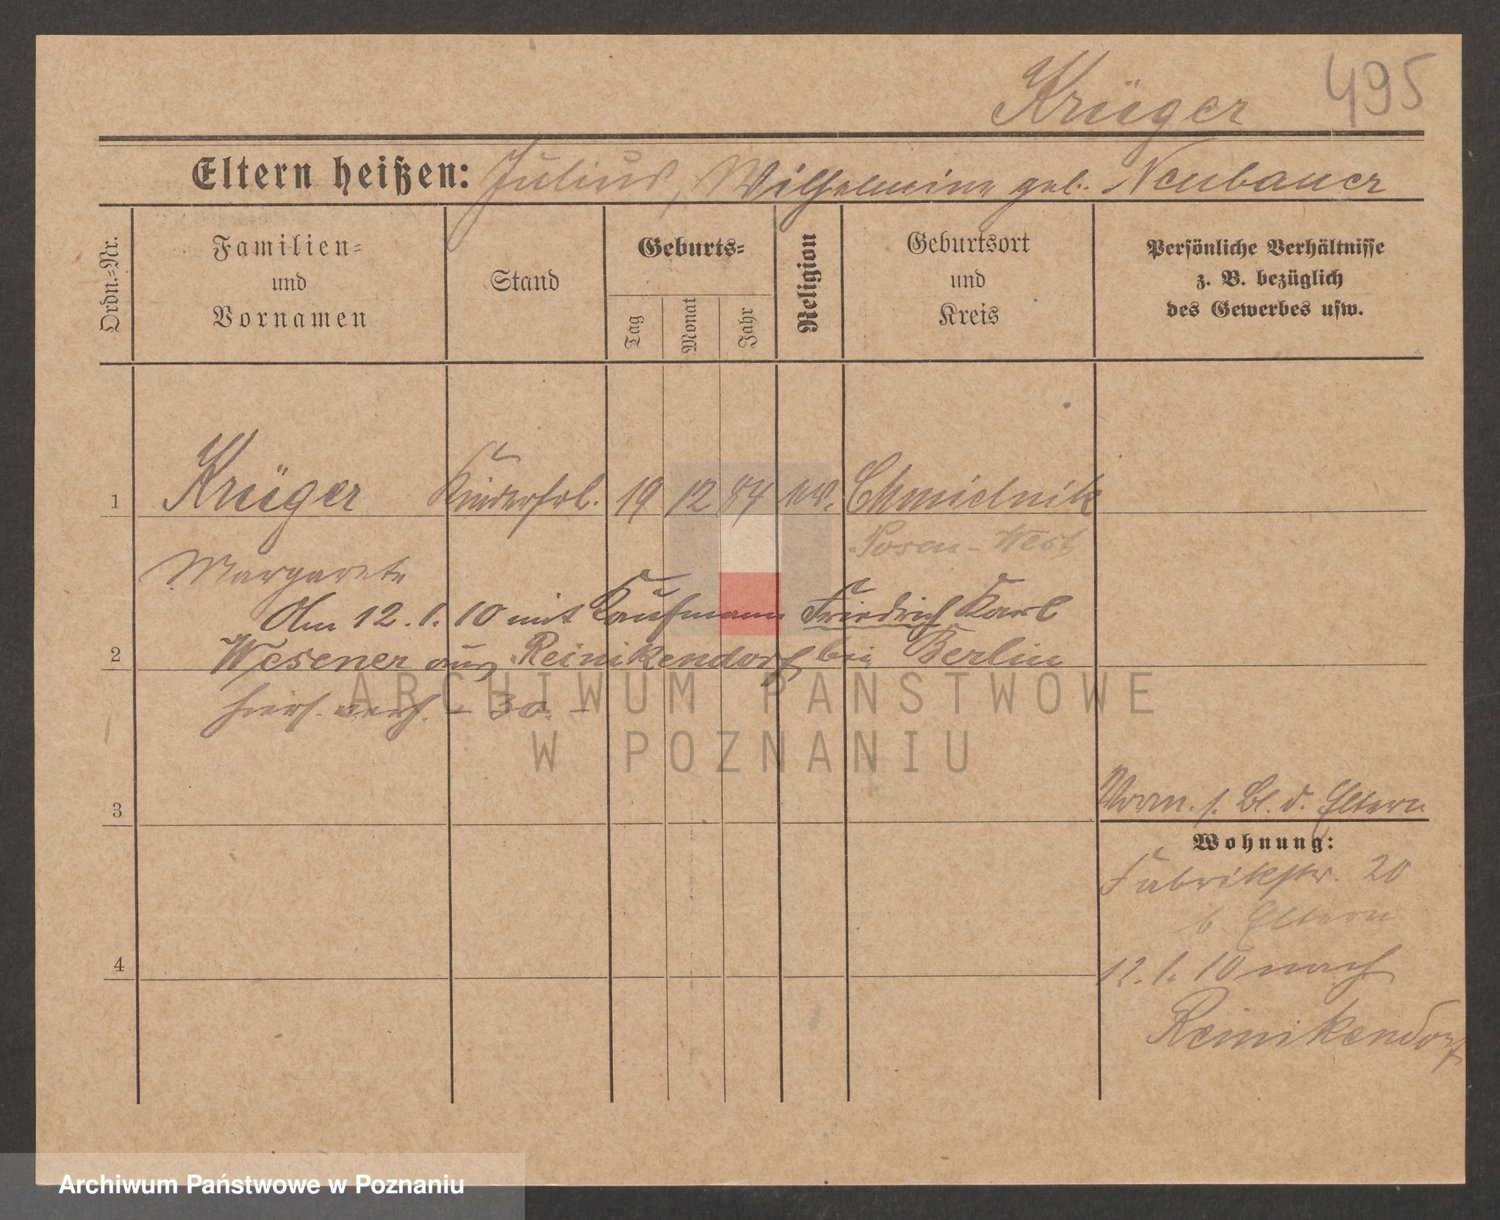 Krüger 495
Eltern heißen: Julius, Wilhelmine geb. Neubauer
Ordn.=Nr.
Familien=
und
Vornamen
Stand
Geburts=
Tag
Monat
Jahr
Religion
Geburtsort
und
Kreis
Persönliche Verhältnisse
z. B. bezüglich
des Gewerbes usw.
1 Krüger Kinderfrl. 19 12 84 ev. Chmielnik
Posen-West
Margarete
Am 12.1.10 mit Kaufmann Friedrich Karl
2 Wesener aus Reinikendorf bei Berlin
hier verh. - 30. -
ARCHIWUM PAŃSTWOWE
W POZNANIU
3
Vorm. s. Bl. d. Eltern
Wohnung:
Fabrikstr. 20
b. Eltern
4
12.1.10 nach
Reinikendorf
Archiwum Państwowe w Poznaniu